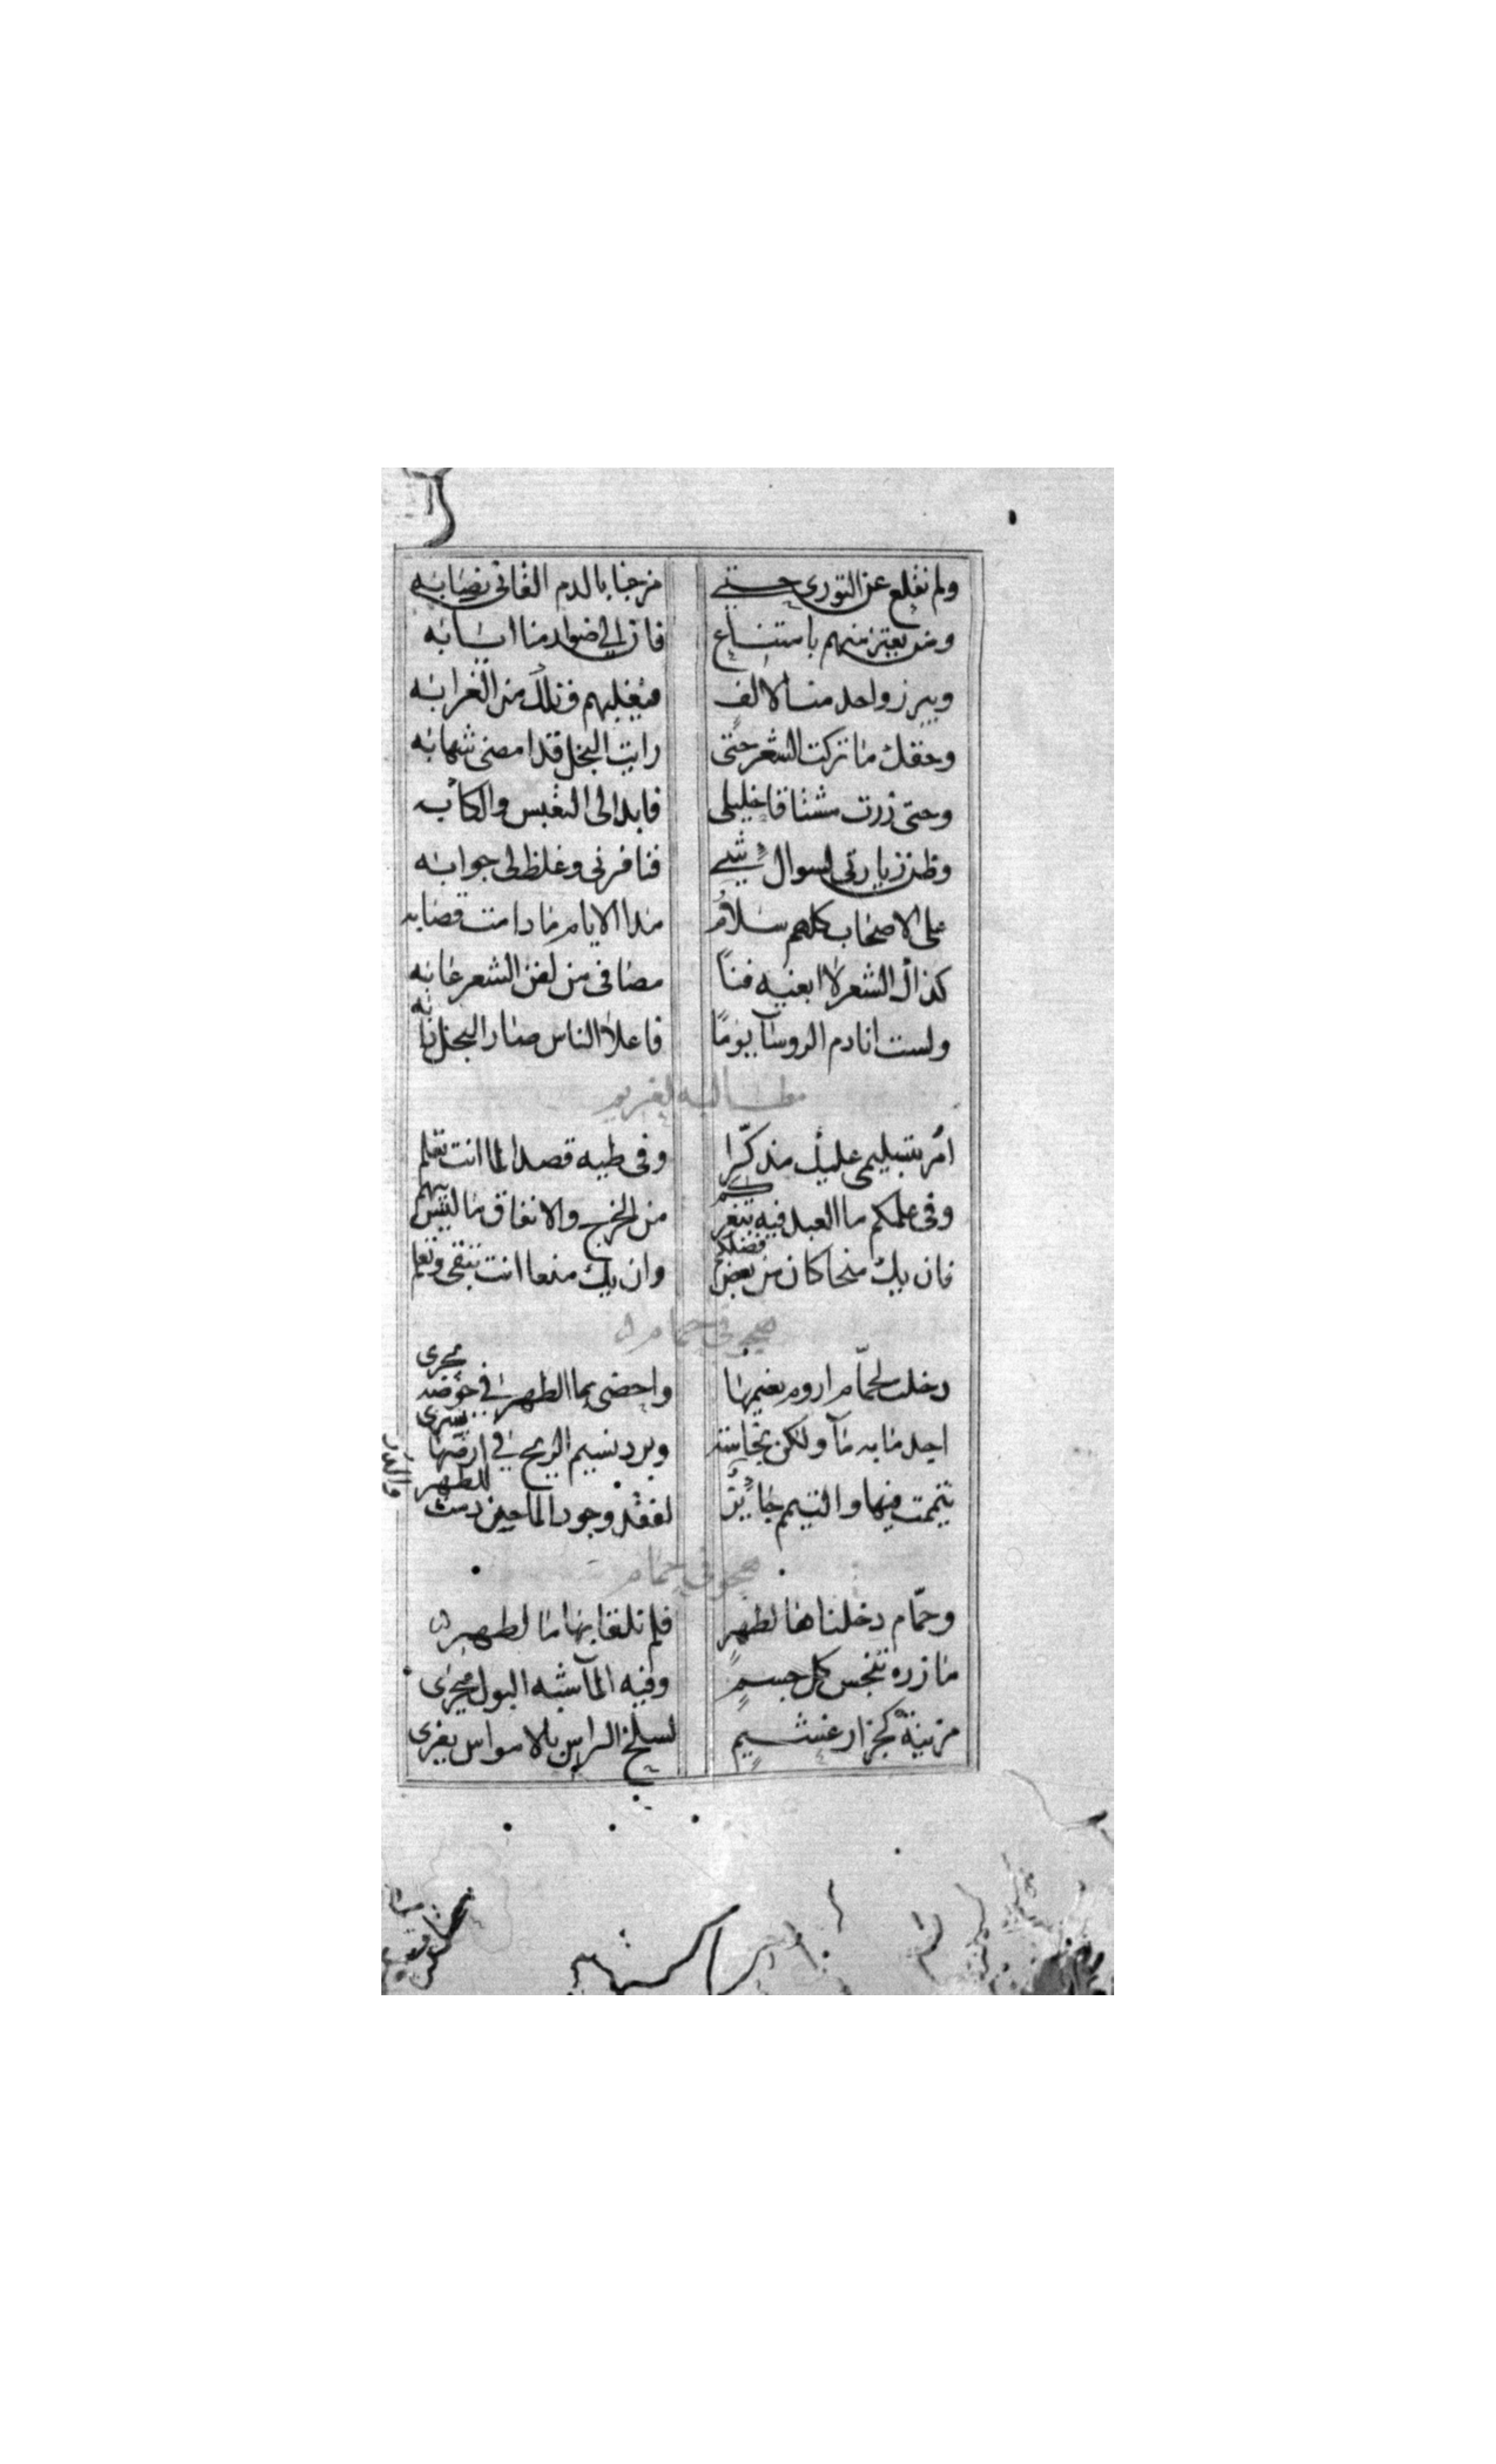 ولم نقلع عن التوري حتى مزجنا بالدم القانى نصابه
ومن يعتز منهم بامتناع فان الى
ويبرز واحد منا لالف فيغلبهم فتلك من الغرابه
وحقك ما تركت الشعر حتى رايت البخل قد امضى شهابه
وحتى زرت مشتاقا خليلى فابدا لى التعبس والكآبه
وظن زيارتى لسوال شيء فنافرنى وغلظ لى جوابه
على الاصحاب كلهم سلام مدا الايام ما دامت
كذاك الشعر لا ابغيه فنا مضافى من لفن الشعر عابه
ولست انادم الروسآ يومًا فاعلا الناس صار البخل دابه
مطالبه لغريم
امر بتسليمى عليك مذكّرا وفى طيه قصد لما انت تعلم
وفى علمكم ما العبد فيه بتغركم من الخرج والانفاق ما ليس يبهم
فان يك منحا كان من بعض فضلكم وان يك منعا انت تبقى وتعلم
هجو فى حمام
دخلت لحمّام اروم نعيمها واحضى بما الطهر فى حوضه مجرى
اجد ما به مآ ولكن نجاسة وبرد نسيم الريح فى ارضها يسرى
تيممت فيها والتيمم جائز لفقد وجود الما حين دمت للطهر
هجو فى حمام
وحمّام دخلناها لطهر فلم نلقا بها ما لطهر
مازره تنجس كل جسم وفيه المآ شبه البول مجرى
مزينه كجزار غشيم لسلخ الراس بالامواس يغرى